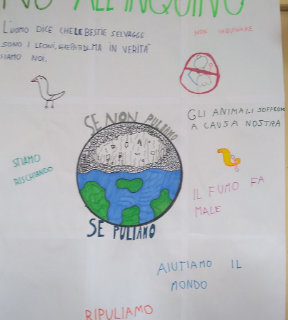 NO ALL'INQUINO
L'UOMO DICE CHE LE BESTIE SELVAGGE
SONO I LEONI, MA IN VERITÀ
SIAMO NOI.
NON INQUINARE
SE NON PULIAMO
GLI ANIMALI SOFFRON
A CAUSA NOSTRA
STIAMO
RISCHIANDO
IL FUMO FA
MALE
SE PULIAMO
AIUTIAMO IL
MONDO
RIPULIAMO